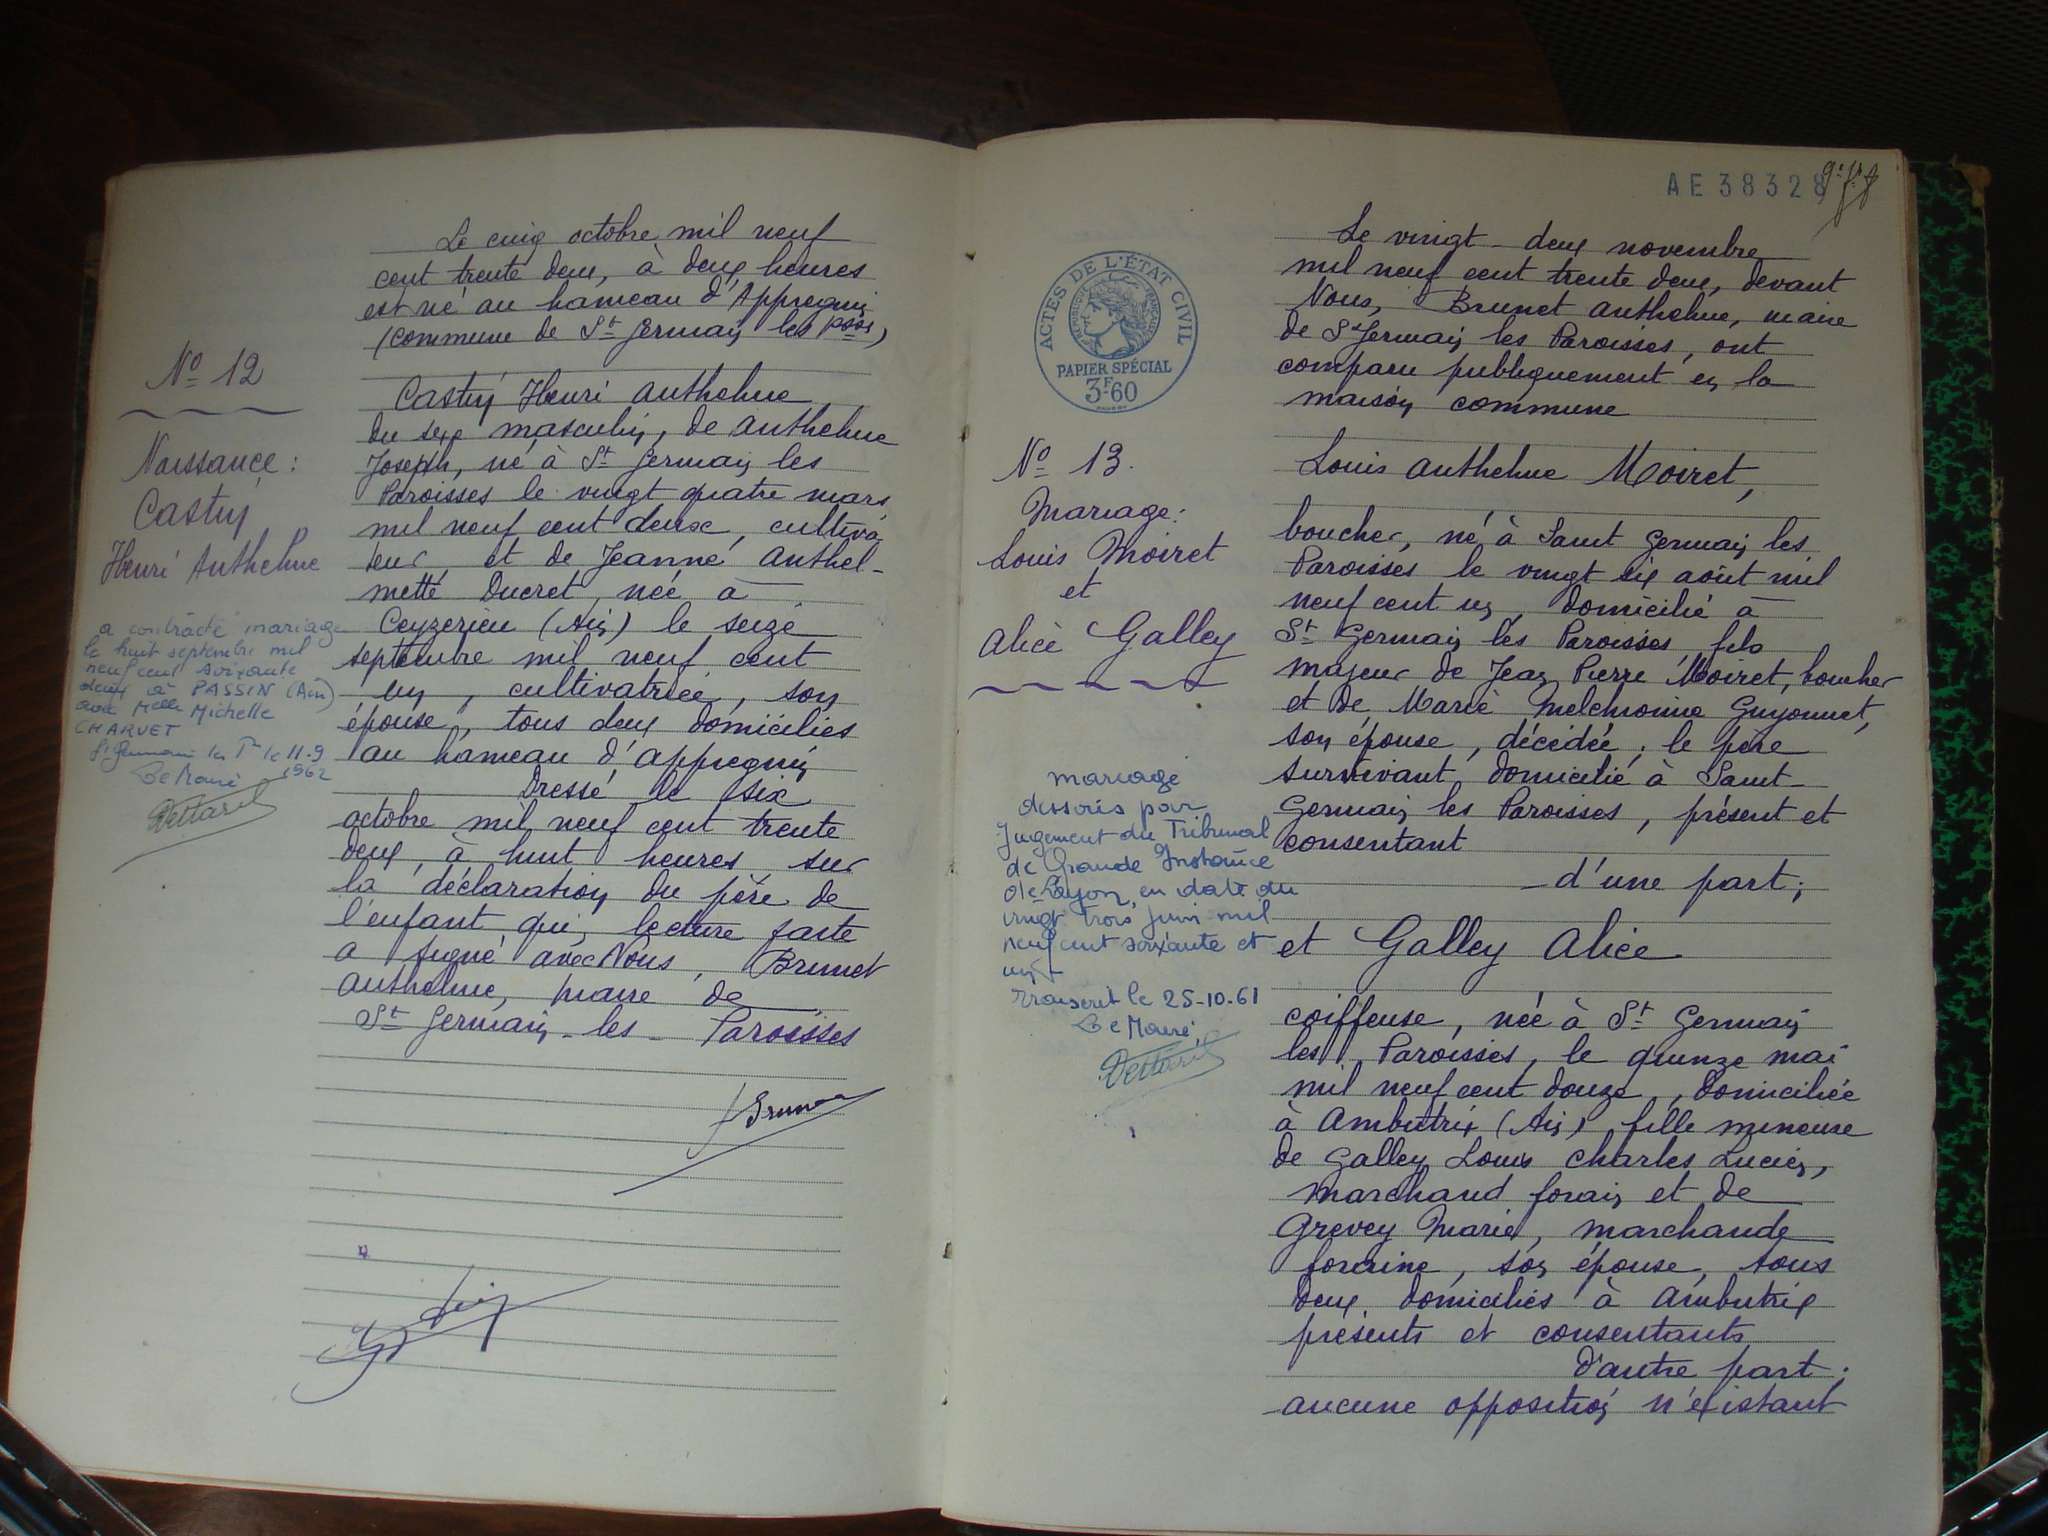 Le cinq octobre mil neuf
cent trente deux, à deux heures
est né au hameau d'Appregnin
(commune de St Germain les Pses)
No 12
Castin Henri Anthelme
du sexe masculin, de Anthelme
Joseph, né à St Germain les
Paroisses le vingt quatre mars
mil neuf cent deux, cultiva-
teur, et de Jeanne Anthel-
mette Ducret, née à
Ceyzerieu (Ain) le seize
septembre mil neuf cent
un, cultivatrice, son
épouse, tous deux domiciliés
au hameau d'appregnin
Dressé le six
octobre mil neuf cent trente
deux, à huit heures, sur
la déclaration du père de
l'enfant qui, lecture faite
a signé avec Nous, Brunet
Anthelme, maire de
St Germain-les-Paroisses
Brunet
Naissance:
Castin
Henri Anthelme
a contracté mariage
le huit septembre mil
neuf cent soixante
deux à PASSIN (Ain)
avec Melle Michelle
CHARVET
St Germain les P. le 11-9
1962
Le Maire
AE 38328
ACTES DE L'ÉTAT CIVIL
RÉPUBLIQUE FRANÇAISE
PAPIER SPÉCIAL
3F60
Le vingt-deux novembre
mil neuf cent trente deux, devant
Nous, Brunet Anthelme, maire
de St Germain les Paroisses, ont
comparu publiquement en la
maison commune
No 13.
Mariage:
Louis Moiret
et
Alice Galley
mariage
dissous par
Jugement du Tribunal
de Grande Instance
de Lyon, en date du
vingt trois juin mil
neuf cent soixante et
un
Transcrit le 25-10-61
Le Maire
Louis Anthelme Moiret,
boucher, né à Saint Germain les
Paroisses le vingt six août mil
neuf cent un, domicilié à
St Germain les Paroisses, fils
majeur de Jean Pierre Moiret, boucher
et de Marie Melchionne Guyonnet,
son épouse, décédée; le père
survivant domicilié à Saint
Germain les Paroisses, présent et
consentant
d'une part;
et Galley Alice
coiffeuse, née à St Germain
les Paroisses, le quinze mai
mil neuf cent douze, domiciliée
à Ambutrix (Ain) fille mineure
de Galley Louis Charles Lucien,
marchand forain et de
Grevey Marie, marchande
foraine, son épouse, tous
deux domiciliés à Ambutrix
présents et consentants
d'autre part;
aucune opposition n'existant